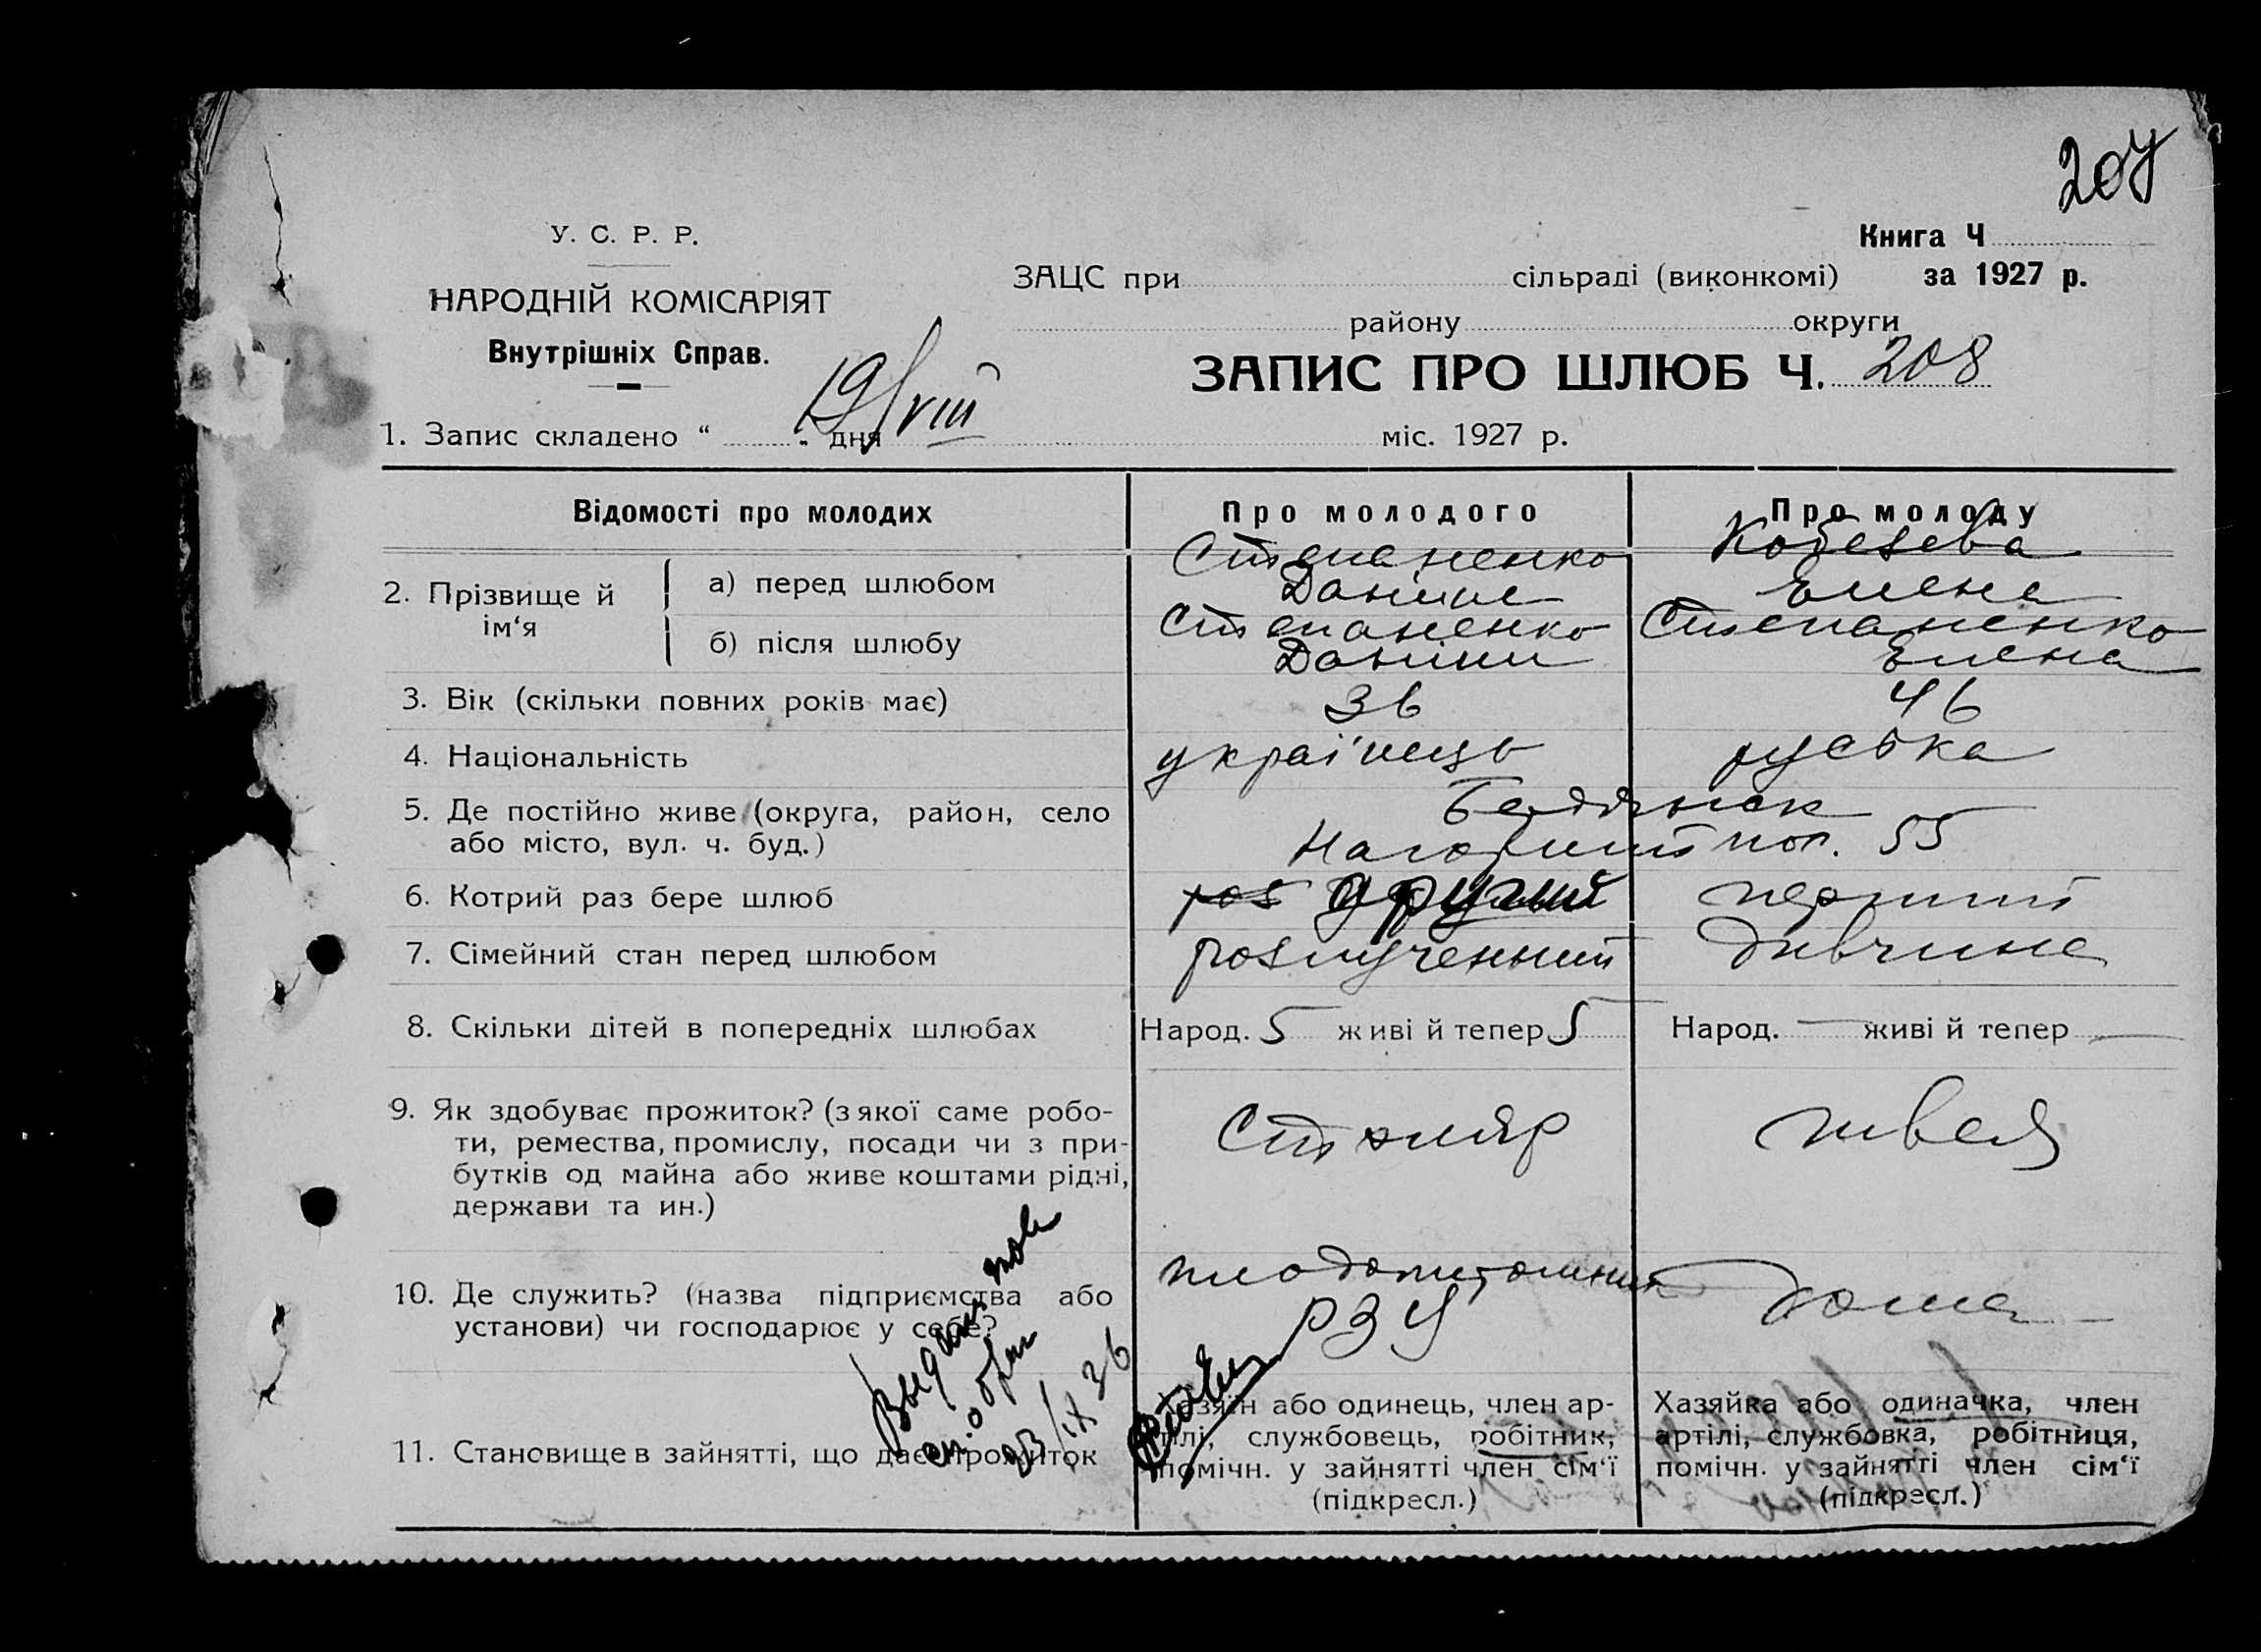 207
У. С. Р. Р.
НАРОДНІЙ КОМІСАРІЯТ
Внутрішніх Справ.
Книга Ч
ЗАЦС при сільраді (виконкомі) за 1927 р.
району округи
ЗАПИС ПРО ШЛЮБ Ч. 208
1. Запис складено “ „ дня 19/VIII міс. 1927 р.
Відомості про молодих
Про молодого
Про молоду
2. Прізвище й ім‘я
а) перед шлюбом
Степаненко
Даниил
Елена
б) після шлюбу
Степаненко
Даниил
Степаненко
Елена
3. Вік (скільки повних років має)
36
46
4. Національність
украї'нець
руська
5. Де постійно живе (округа, район, село
або місто, вул. ч. буд.)
Бердянськ
Нагорный 55
6. Котрий раз бере шлюб
роз другий
перший
7. Сімейний стан перед шлюбом
розлученный
дивчина
8. Скільки дітей в попередніх шлюбах
Народ. 5 живі й тепер 5
Народ. — живі й тепер —
9. Як здобуває прожиток? (з якої саме робо-
ти, ремества, промислу, посади чи з при-
бутків од майна або живе коштами рідні,
держави та ин.)
Столяр
швея
10. Де служить? (назва підприємства або
установи) чи господарює у себе?
плодопитомник
РЗУ
дома
11. Становище в зайнятті, що дає прожиток
Хазяїн або одинець, член ар-
тілі, службовець, робітник,
помічн. у зайнятті член сім‘ї
(підкресл.)
Хазяйка або одиначка, член
артілі, службовка, робітниця,
помічн. у зайнятті член сім‘ї
(підкресл.)
23/IX 36